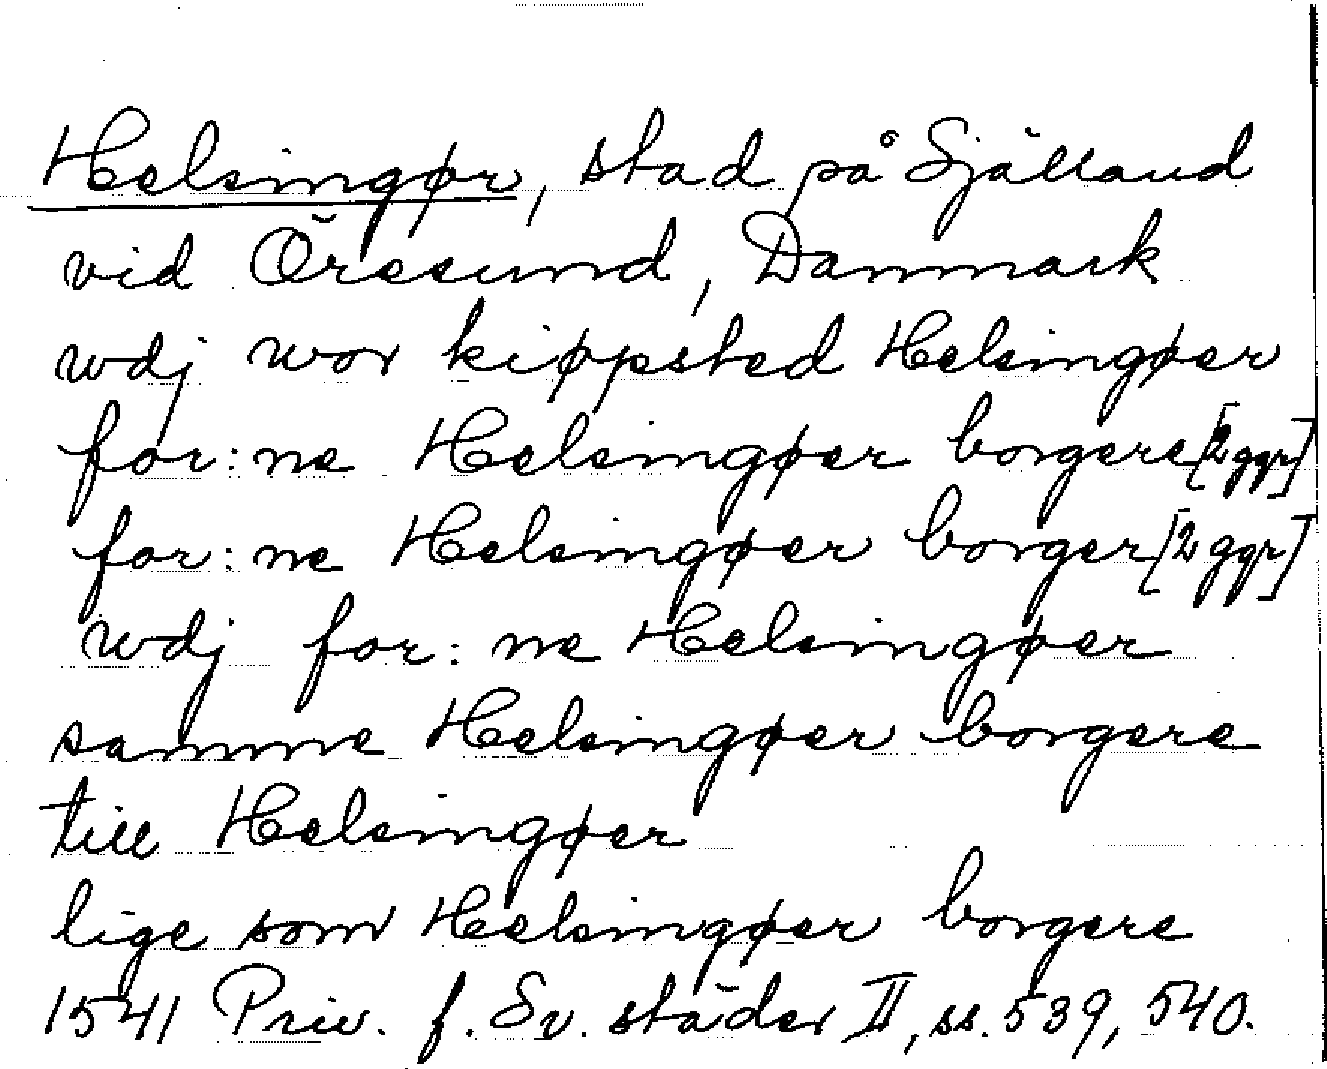 Helsingør, stad på Själland
vid Öresund, Danmark
wdj wor kiøpsted Helsingøer
for:ne Helsingøer borgere [2 ggr]
for:ne Helsingøer borger [2 ggr]
wdj for:ne Helsingøer
samme Helsingøer borgere
till Helsingøer
lige som Helsingøer borgere
1541 Priv. f. Sv. städer II, ss. 539, 540.